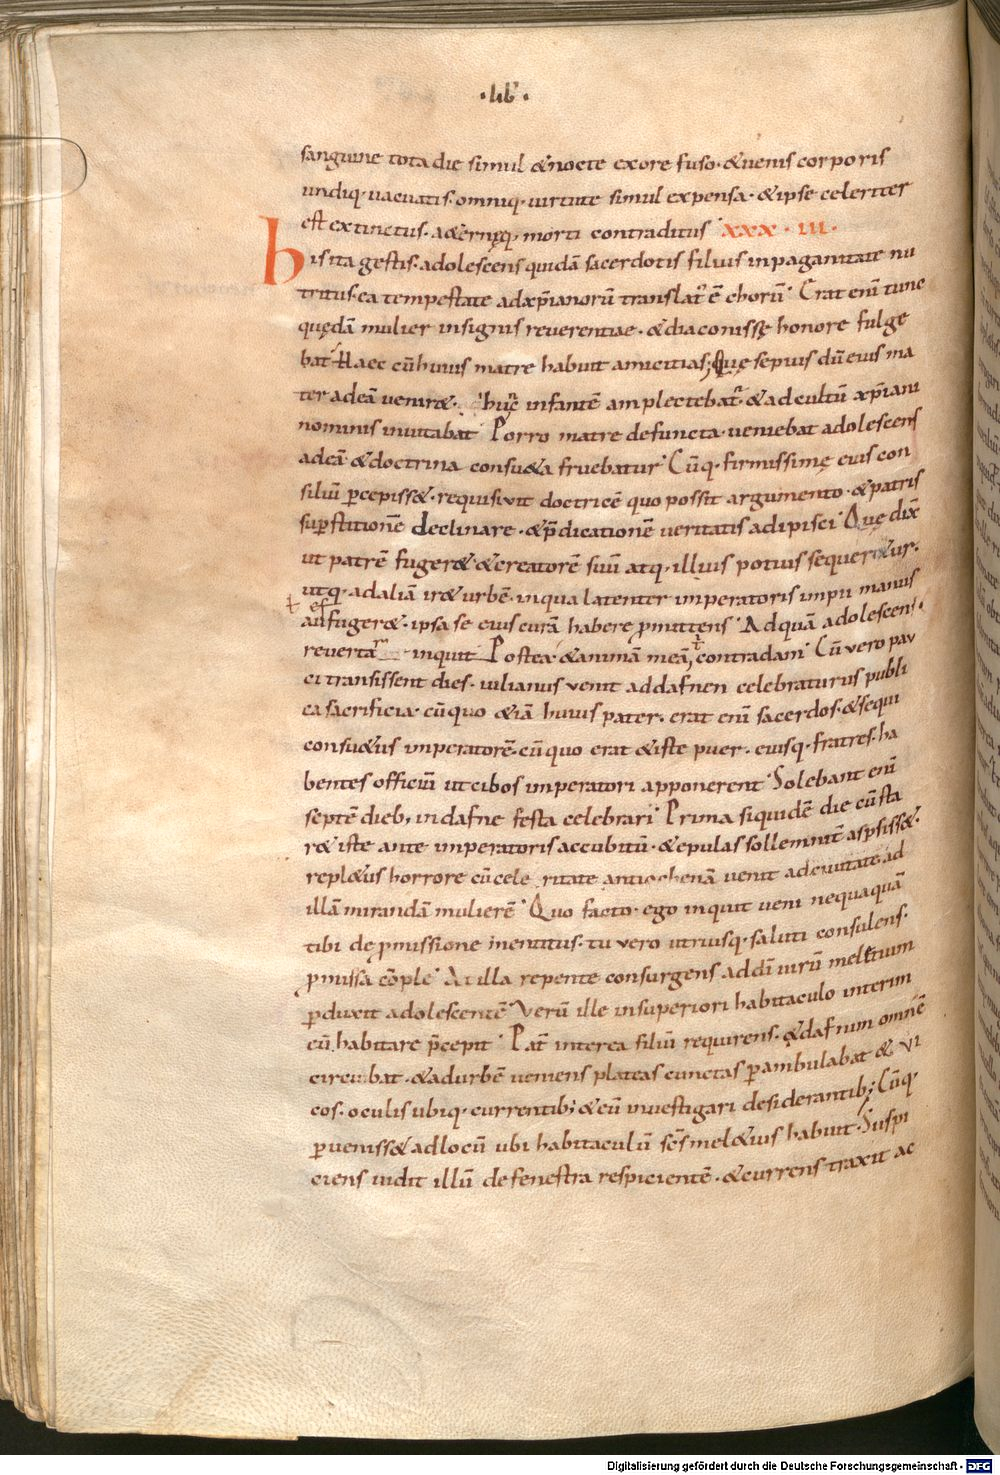 ·lib̄·
sanguine tota die simul &nocte exore fuso· &uenis corporis
undiq· uacuatis· omniq· uirtute simul expensa· &ipse celeriter
est extinctus· a&ernęq· morti contraditus XXX·III·
his ita gestis· adolescens quidā sacerdotis filius inpaganitate nu
tritus· ea tempestate adxp̄ianorū translat' ē chorū· Erat enī tunc
quędā mulier insignis reuerentiae· &diaconissę honore fulge
bat· Haec cū huius matre habuit amicitias; Quę sepius dū eius ma
ter adeā uenir&· hunc infantē amplectebat'· &ad cultū xp̄iani
nominis inuitabat· Porro matre defuncta· ueniebat adolescens
adeā· &doctrina consu&a fruebatur· Cūq· firmissimę eius con
siliū pcepiss&· requisiuit doctricē quo possit argumento· &patris
supstitionē declinare· &p̄dicationē ueritatis adipisci· Quę dix̄
ut patrē fuger& &creatorē suū atq· illius potius sequer&ur·
utq· adaliā ir& urbē· inqua latenter imperatoris impii manus
ł ef
aufuger&· ipsa se eius curā habere pmittens· Adquā adolescens·
reverta inquit· Postea· &animā meā, contradam· Cū vero pau
ci transissent dies· iulianus venit addafnen celebraturus publi
ca sacrificia· cū quo &iā huius pater· erat enī sacerdos· &sequi
consu&us imperatorē· cū quo erat &iste puer· eiusq· fratres· ha
bentes officiū ut cibos imperatori apponerent· Solebant enī
septē dieb; indafne festa celebrari· Prima siquidē die cū sta
r& iste ante imperatoris accubitū· &epulas sollemnit' aspsiss&·
repl&us horrore cū cele ritate antiochenā uenit adciuitatē ad
illā mirandā mulierē· Quo facto· ego inquit ueni nequaquā
tibi de pmissione mentitus· tu vero utriusq· saluti consulens·
pmissa cōple· At illa repente consurgens addī uirū meletium
pduxit adolescentē· Verū ille insuperiori habitaculo interim
cū habitare p̄cepit· Pat̄ interea filiū requirens· &dafnum omnē
circuibat· &adurbē ueniens plateas cunctas pambulabat & vi
cos· oculis ubiq· currentib; &eū inuestigari desiderantib; Cūq·
pueniss& adlocū ubi habitaculū sc̄s mel&ius habuit· Suspi
ciens uidit illū defenestra respicientē· &currens traxit ac
Digitalisierung gefördert durch die Deutsche Forschungsgemeinschaft - DFG